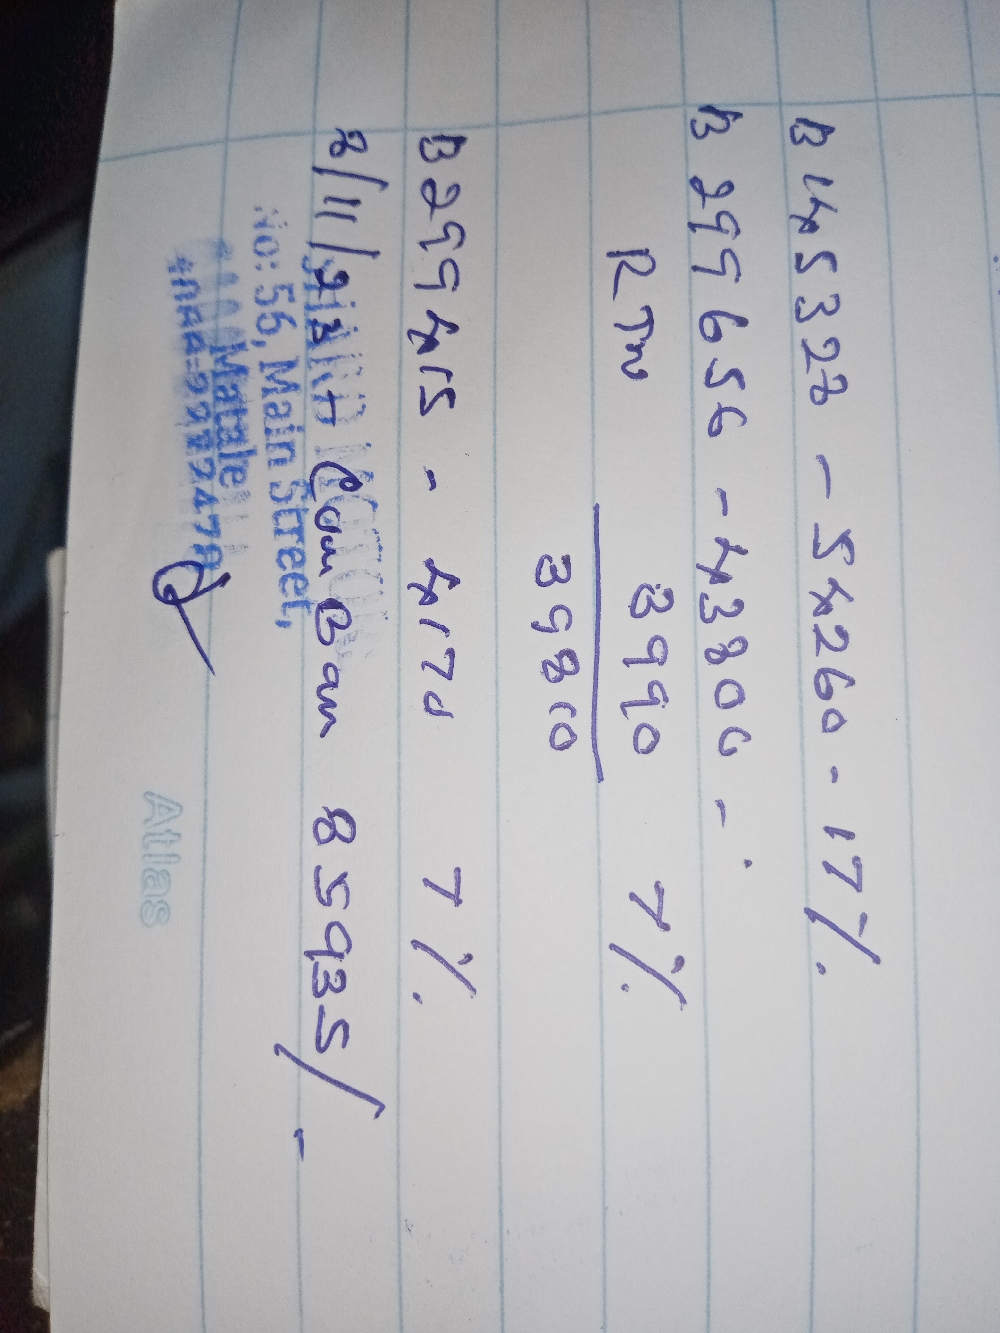 B 145328 - 54260 - 17%.
B 299656 - 43800 -
RTN 3990 7%.
39810
B 299415 - 4170 7%.
8/11/23 Com Ban 85935/-
No: 56, Main Street,
Matale
Atlas